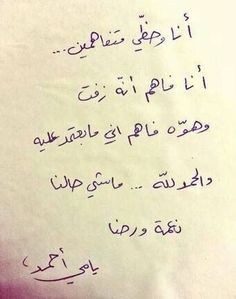 أنا وحظّي متفاهمين...
أنا فاهم أنّه زفت
وهوّه فاهم اني مابعتمد عليه
والحمد للّه ... ماشي حالنا
نعمة ورضا
يامي أحمد